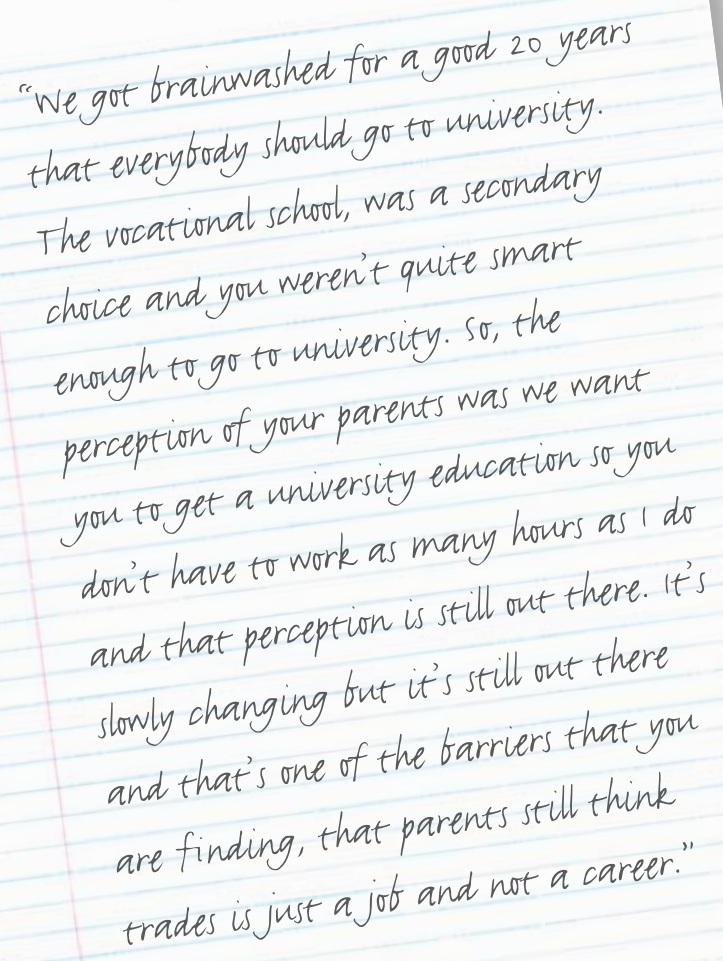 “We got brainwashed for a good 20 years
that everybody should go to university.
The vocational school, was a secondary
choice and you weren't quite smart
enough to go to university. So, the
perception of your parents was we want
you to get a university education so you
don't have to work as many hours as I do
and that perception is still out there. It's
slowly changing but it's still out there
and that's one of the barriers that you
are finding, that parents still think
trades is just a job and not a career.”